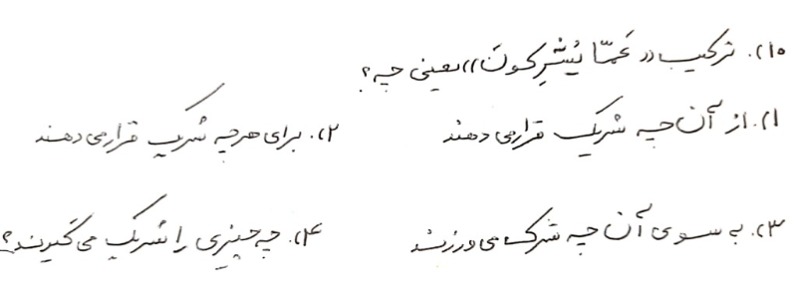 ۱۵). ترکیب «عَمّا یُشرِکونَ» یعنی چه؟
۱). از آن چه شریک قرار می دهند ۲). برای هر چه شریک قرار می دهند
۳). به سوی آن چه شرک می ورزند ۴). چه چیزی را شریک می گیرند؟